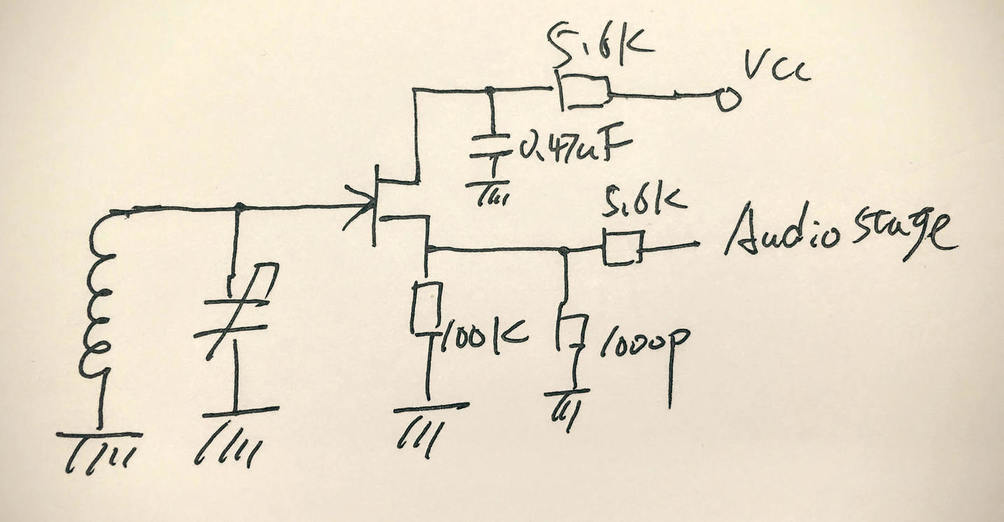 5.6K
Vcc
0.47uF
5.6K
Audio stage
100K
1000p